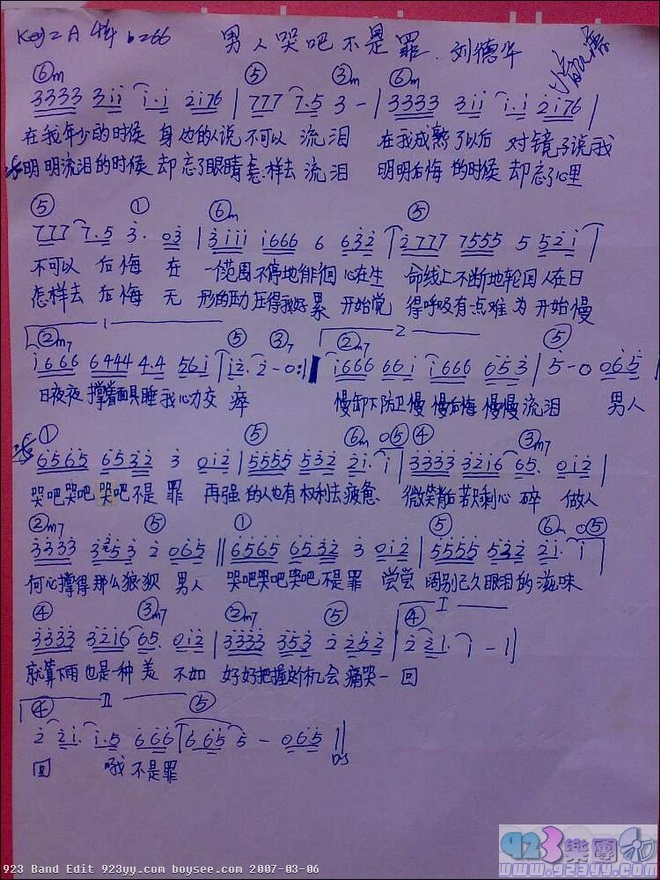 Key=A 4/4 b=66 男人哭吧不是罪. 刘德华
⑥m ⑤ ③m ⑥m
3333 3ii i·i 2i76 | 777 7·5 3 - | 3333 3ii i·i 2i76 |
在我年少的时候 身边的人说不可以 流泪 在我成熟了以后 对镜子说我
明明流泪的时候 却忘了眼睛怎样去 流泪 明明后悔的时候 却忘了心里
⑤ ① ⑥m ⑤
777 7·5 3· 03 | 3iii i666 6 632 | 2777 7555 5 52i |
不可以 后悔 在 一范围不停地徘徊 心在生 命线上不断地轮回人在日
怎样去 后悔 无 形的压力压得我好累 开始觉 得呼吸有点难为 开始慢
1 2
②m7 ⑤ ③7 ②m7 ⑤
i666 6444 4·4 56i | i2· 2-0 :| i666 66i i666 653 | 5-0 065 |
日夜夜 撑着面具睡 我心力交 瘁 慢卸下防卫慢 慢后悔 慢慢流泪 男人
① ⑤ ⑥m 0⑤ ④ ③m7
6565 6532 3 0i2 | 5555 532 2i· i | 3333 32i6 65· 0i2 |
哭吧哭吧 哭吧不是 罪 再强 的人也有 权利去疲惫 微笑背后若只剩心 碎 做人
②m7 ⑤ ① ⑤ ⑥m 0⑤
何必撑得 那么狼狈 男人 哭吧哭吧哭吧 不是 罪 尝尝 阔别已久眼泪的滋味
④ ③m7 ②m7 ⑤ ④ I
3333 32i6 65· 0i2 | 3333 353 2 2252 | 2 22i· i - i |
就算下雨 也是一种 美 不如 好好把握这个机会 痛哭一 回
④ II ⑤
2 2i· i·5 666 | 665 5 - 065 ‖ DS
回 哦 不是罪
923 Band Edit 923yy.com boysee.com 2007-03-06
923樂團
www.923yy.com